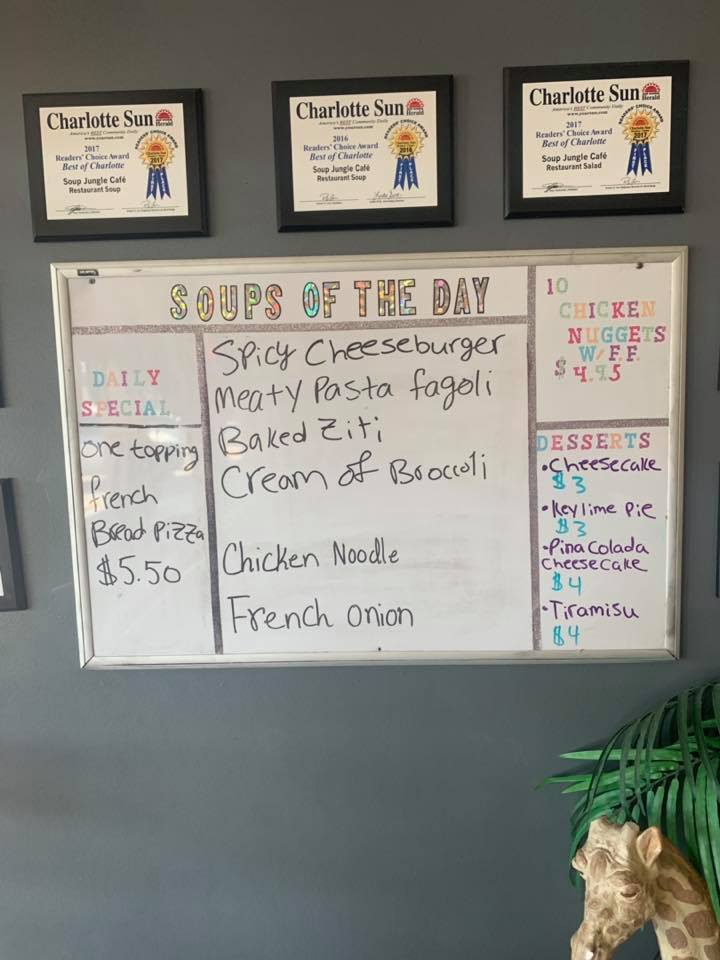 Charlotte Sun
Herald
America's BEST Community Daily
www.yoursun.com
2017
Readers' Choice Award
Best of Charlotte
Soup Jungle Café
Restaurant Soup
READERS' CHOICE AWARD
2017
Charlotte Sun
Herald
America's BEST Community Daily
www.yoursun.com
2016
Readers' Choice Award
Best of Charlotte
Soup Jungle Café
Restaurant Soup
READERS' CHOICE AWARD
2016
Charlotte Sun
Herald
America's BEST Community Daily
www.yoursun.com
2017
Readers' Choice Award
Best of Charlotte
Soup Jungle Café
Restaurant Salad
READERS' CHOICE AWARD
2017
SOUPS OF THE DAY
DAILY
SPECIAL
one topping
french
Bread Pizza
$5.50
Spicy Cheeseburger
Meaty Pasta fagoli
Baked Ziti
Cream of Broccoli
Chicken Noodle
French onion
10
CHICKEN
NUGGETS
W/F.F.
$4.95
DESSERTS
•Cheesecake
$3
•Keylime Pie
$3
•Pina Colada
Cheesecake
$4
•Tiramisu
$4